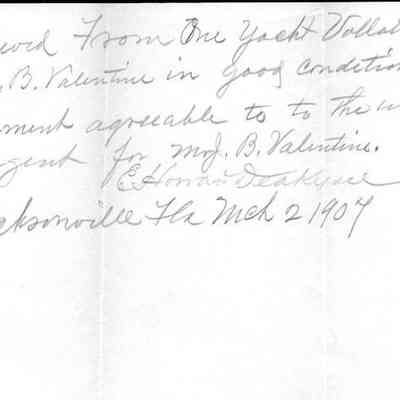 From One Yacht
B. Valentine in good condition
ment agreeable to to the
gent for Mr J. B. Valentine.
E. Howard
cksonville Fla Mch 2 1907